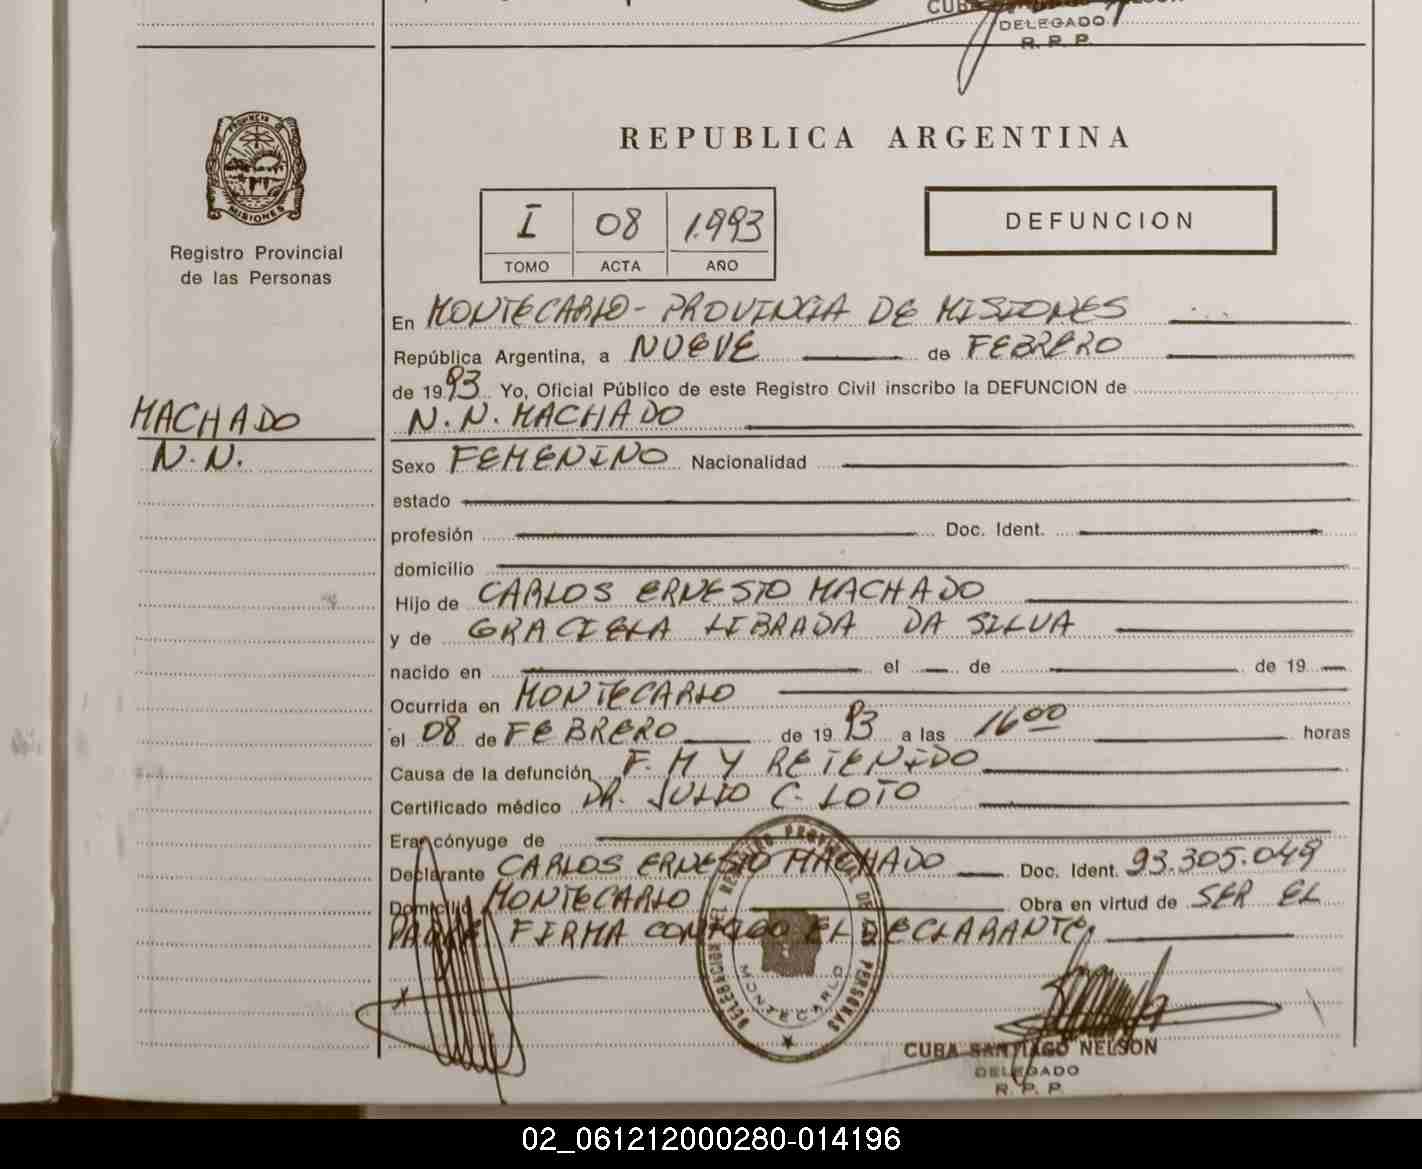 CUBA
DELEGADO
R. P. P.
PROVINCIA DE
MISIONES
Registro Provincial
de las Personas
REPUBLICA ARGENTINA
I 08 1.993
TOMO ACTA AÑO
DEFUNCION
En MONTECARLO - PROVINCIA DE MISIONES
República Argentina, a NUEVE de FEBRERO
de 1993 Yo, Oficial Público de este Registro Civil inscribo la DEFUNCION de
MACHADO
N. N. MACHADO
N. N.
Sexo FEMENINO Nacionalidad
estado
profesión Doc. Ident.
domicilio
Hijo de CARLOS ERNESTO MACHADO
y de GRACIELA LIBRADA DA SILVA
nacido en el de de 19
Ocurrida en MONTECARLO
el 08 de FEBRERO de 1993 a las 16 00 horas
Causa de la defunción F. M Y RETENIDO
Certificado médico DR. JULIO C. LOTO
Era cónyuge de
Declarante CARLOS ERNESTO MACHADO Doc. Ident. 93.305.049
Domicilio MONTECARLO Obra en virtud de SER EL
PADRE. FIRMA CONMIGO EL DECLARANTE.
REGISTRO PROVINCIAL DE LAS PERSONAS
DELEGACION
MONTECARLO
CUBA SANTIAGO NELSON
DELEGADO
R. P. P.
02_061212000280-014196